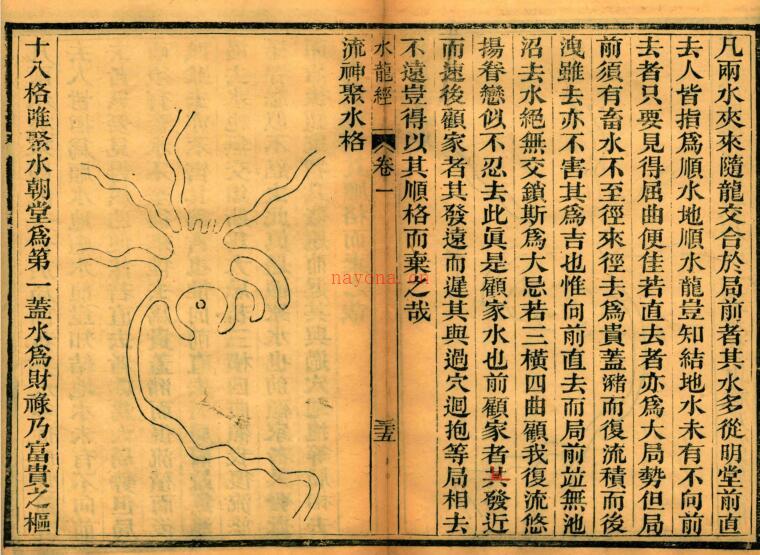 凡兩水夾來隨龍交合於局前者其水多從明堂前直
去人皆指爲順水地順水龍豈知結地水未有不向前
去者只要見得屈曲便佳若直去者亦爲大局勢但局
前須有畜水不至徑來徑去爲貴蓋瀦而復流積而後
洩雖去亦不害其爲吉也惟向前直去而局前並無池
沼去水絕無交鎖斯爲大忌若三橫四曲顧我復流悠
揚眷戀似不忍去此眞是顧家水也前顧家者其發近
而速後顧家者其發遠而遲其與過穴迴抱等局相去
不遠豈得以其順格而棄之哉
水龍經
卷一
三五
流神聚水格
十八格唯聚水朝堂爲第一蓋水爲財祿乃富貴之樞
nayona.cn